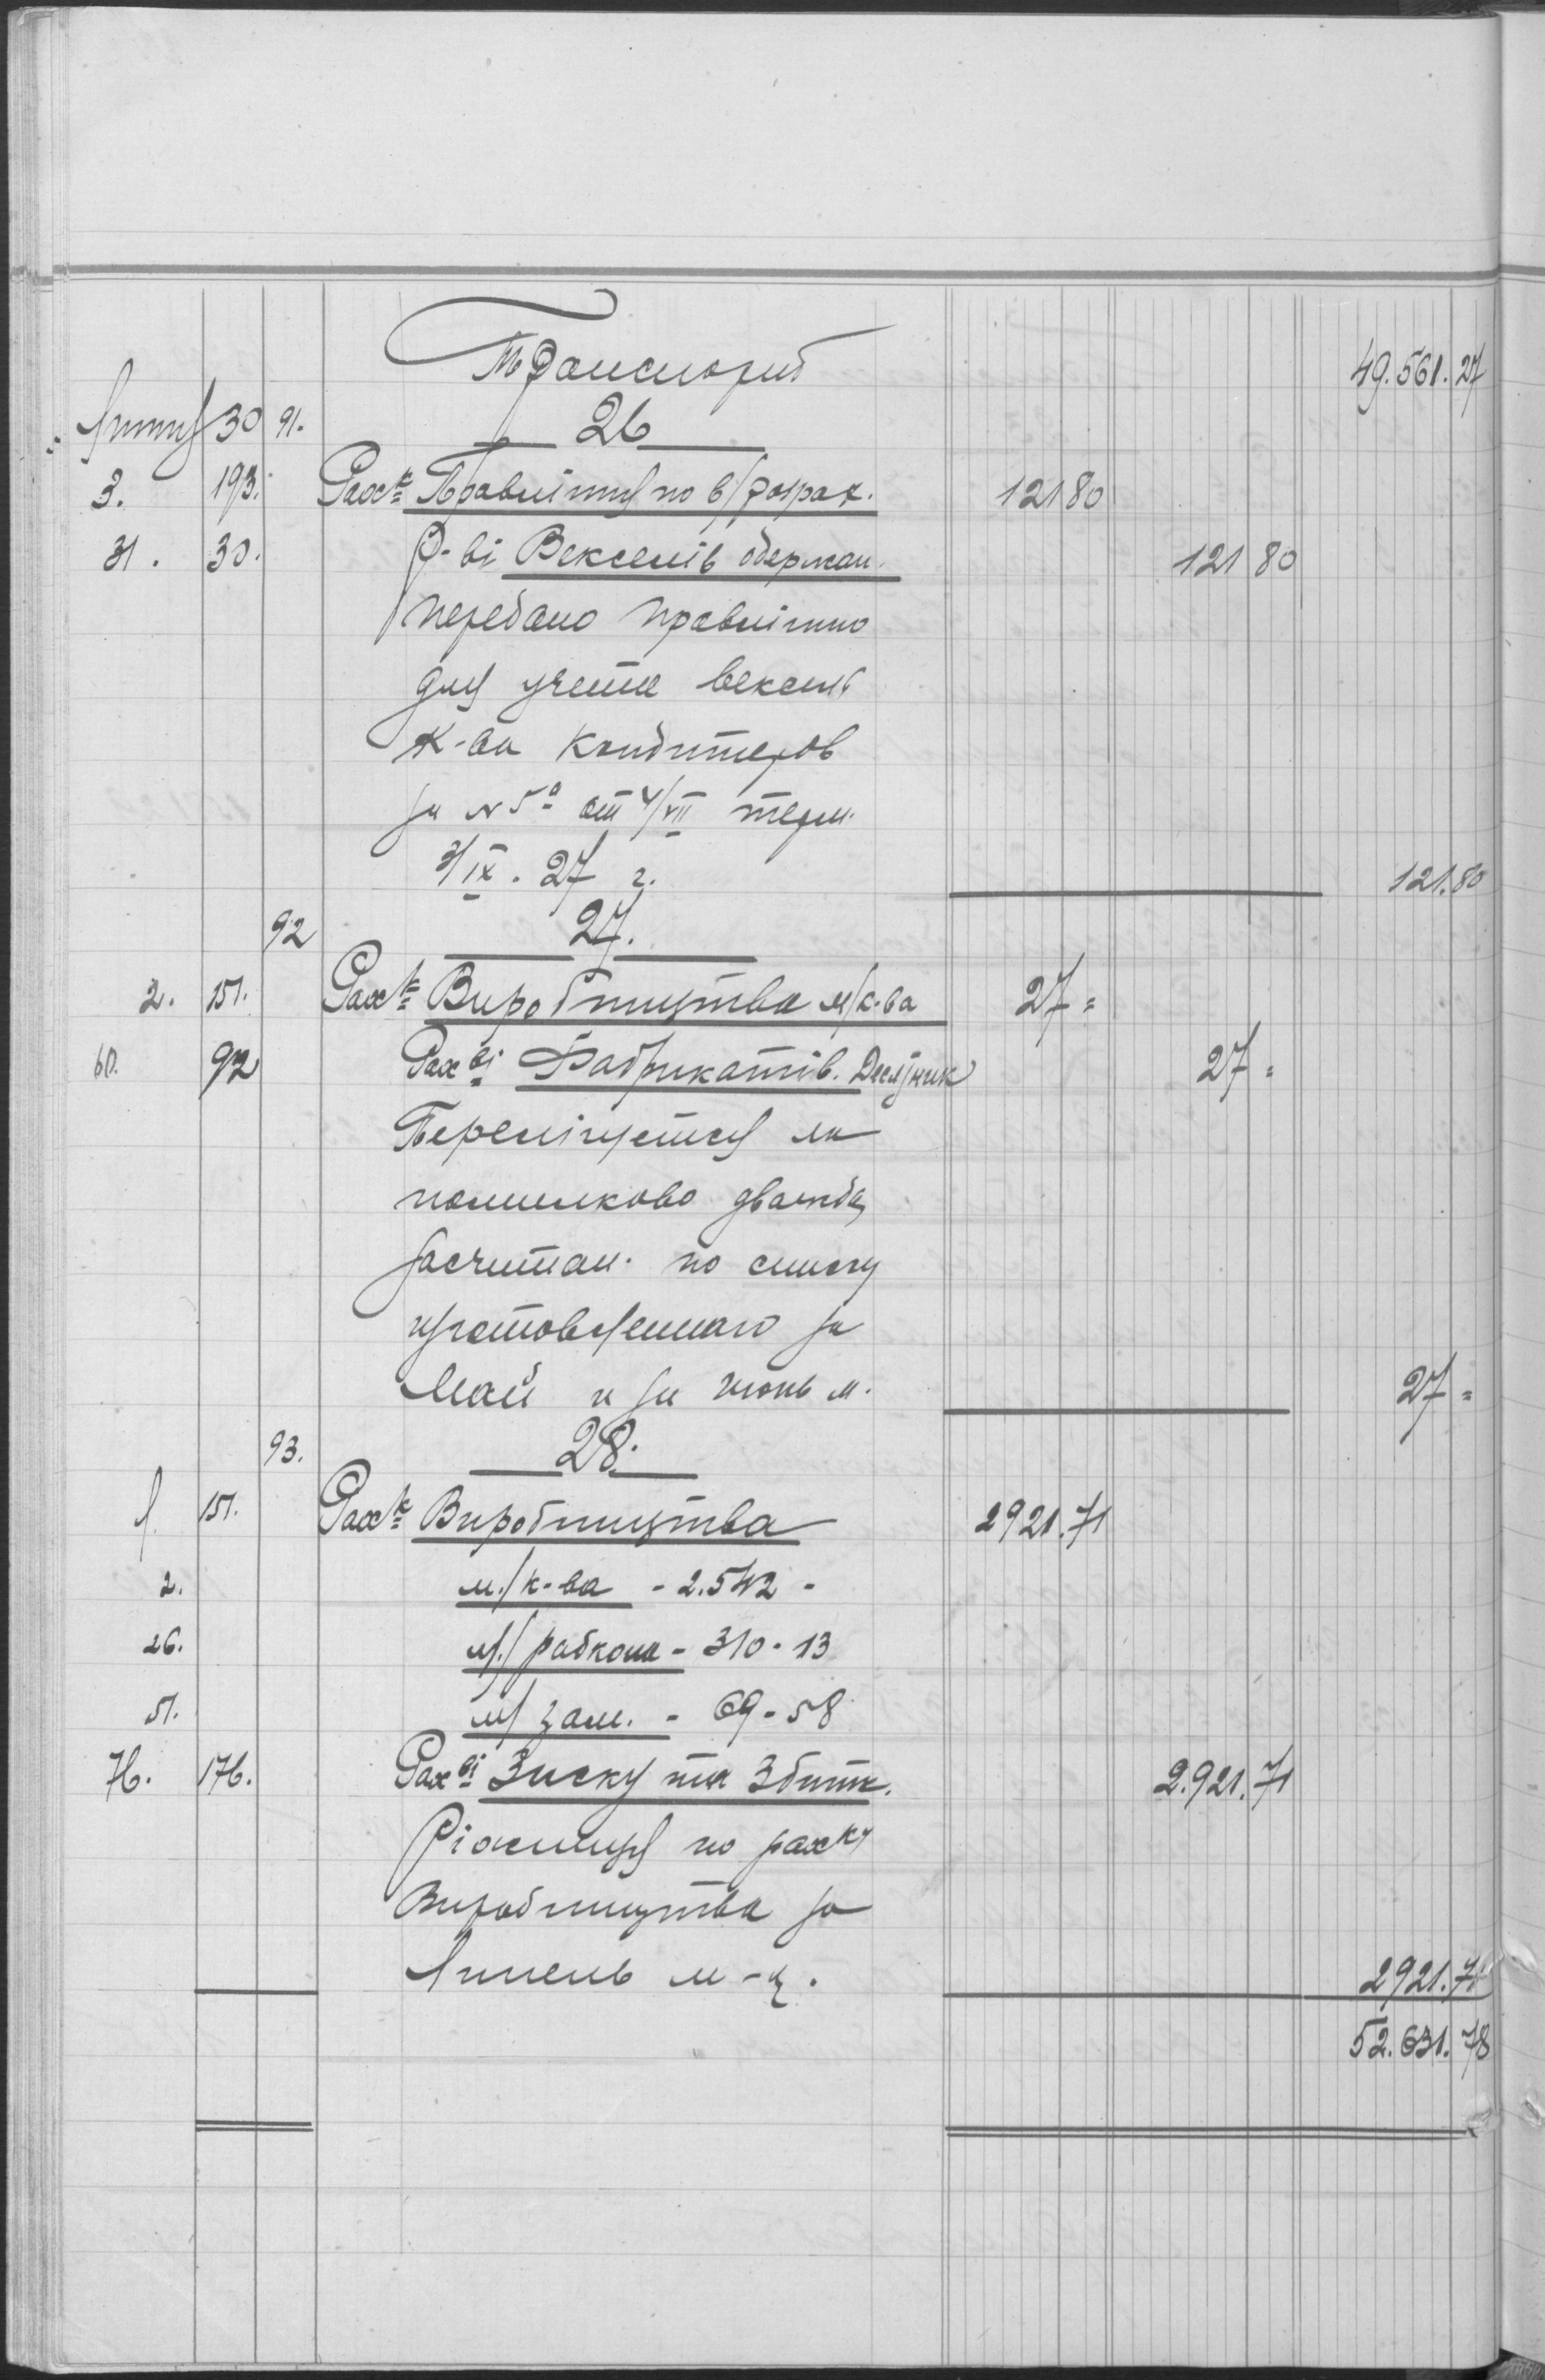 Транспорт 49.561.27
Липня 30 91. 26
3. 193. Рах-к Правління по в/розрах. 121 80
31. 30. Р-ві Векселів одержан. 121 80
Передано правлінню
для учета вексель
К-ва Кондитеров
за № 5 от 4/VII терм.
3/IX. 27 г. 121.80
92 27.
2. 151. Рах-к Виробництва м/к-ва 27 =
60. 92 Рах-ві Фабрикатів. 27 =
помилково дважды
засчитан. по списку
изготовленного за
Май и за июнь м. 27 =
93. 28.
1. 151. Рах-к Виробництва 2921.71
2. м./к-ва - 2.542 -
26. м./рабкома - 310 - 13
51. м/ зали. - 69 - 58
76. 176. Рах-ві Зиску та Збитк. 2.921.71
Ріжниця по рах-ку
Виробництва за
Липень м-ц. 2921.71
52.631.78